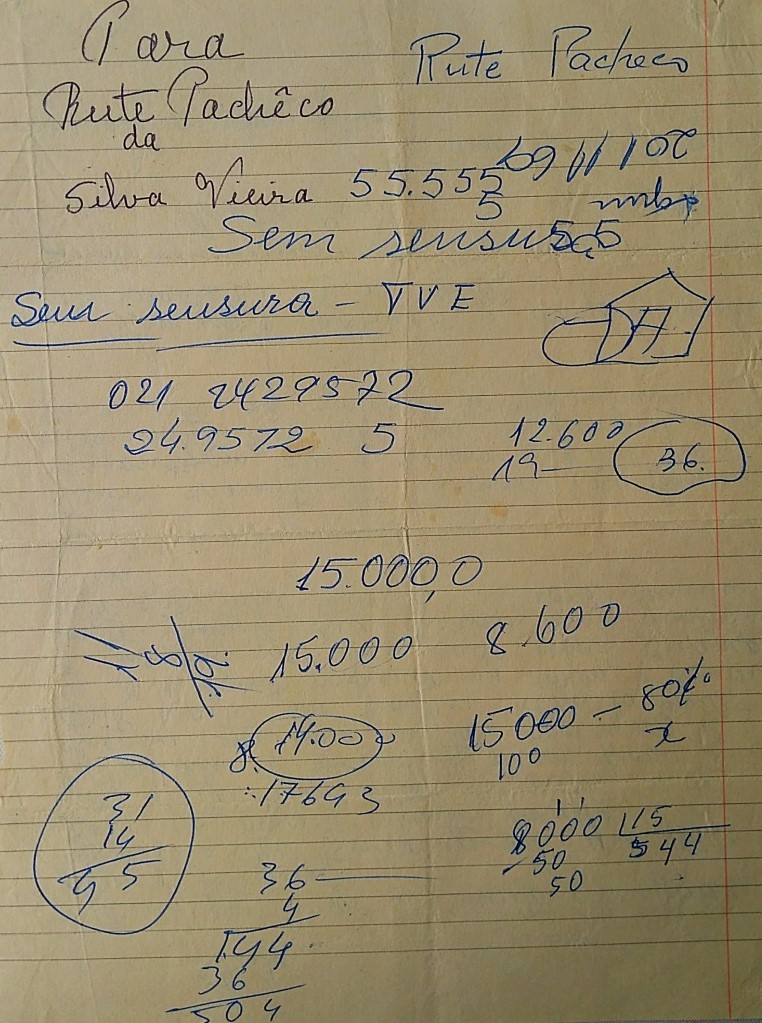 Para
Rute Pacheco
Rute Pachêco
da
Silva Vieira 55.555
5
Sem sensu
5,5
Sem sensura - TVE
021 2429572
24.9572 5
12.600
19— 36.
15.000,0
15.000 8.600
15000 — 80%
100 x
8.
17643
31
14
45
8000 15
50 544
50
36
4
144
36
504